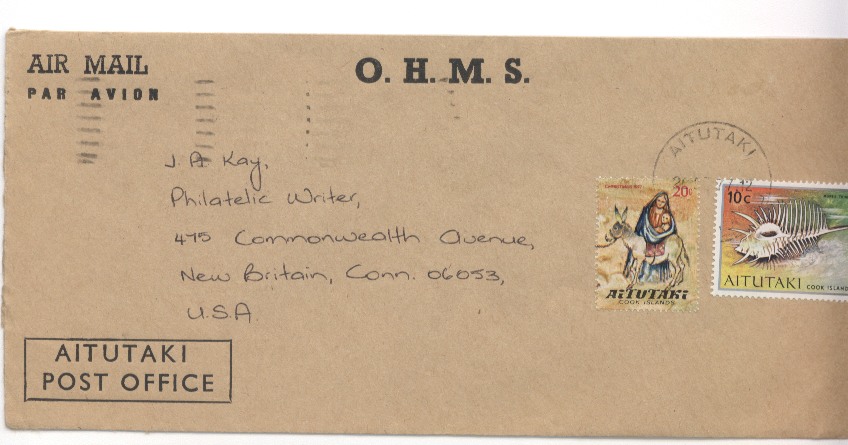 AIR MAIL
PAR AVION
O. H. M. S.
J. A Kay,
Philatelic Writer,
475 Commonwealth Avenue,
New Britain, Conn. 06053,
U.S.A.
AITUTAKI
POST OFFICE
AITUTAKI
20c
AITUTAKI
COOK ISLANDS
10c
AITUTAKI COOK ISLAND